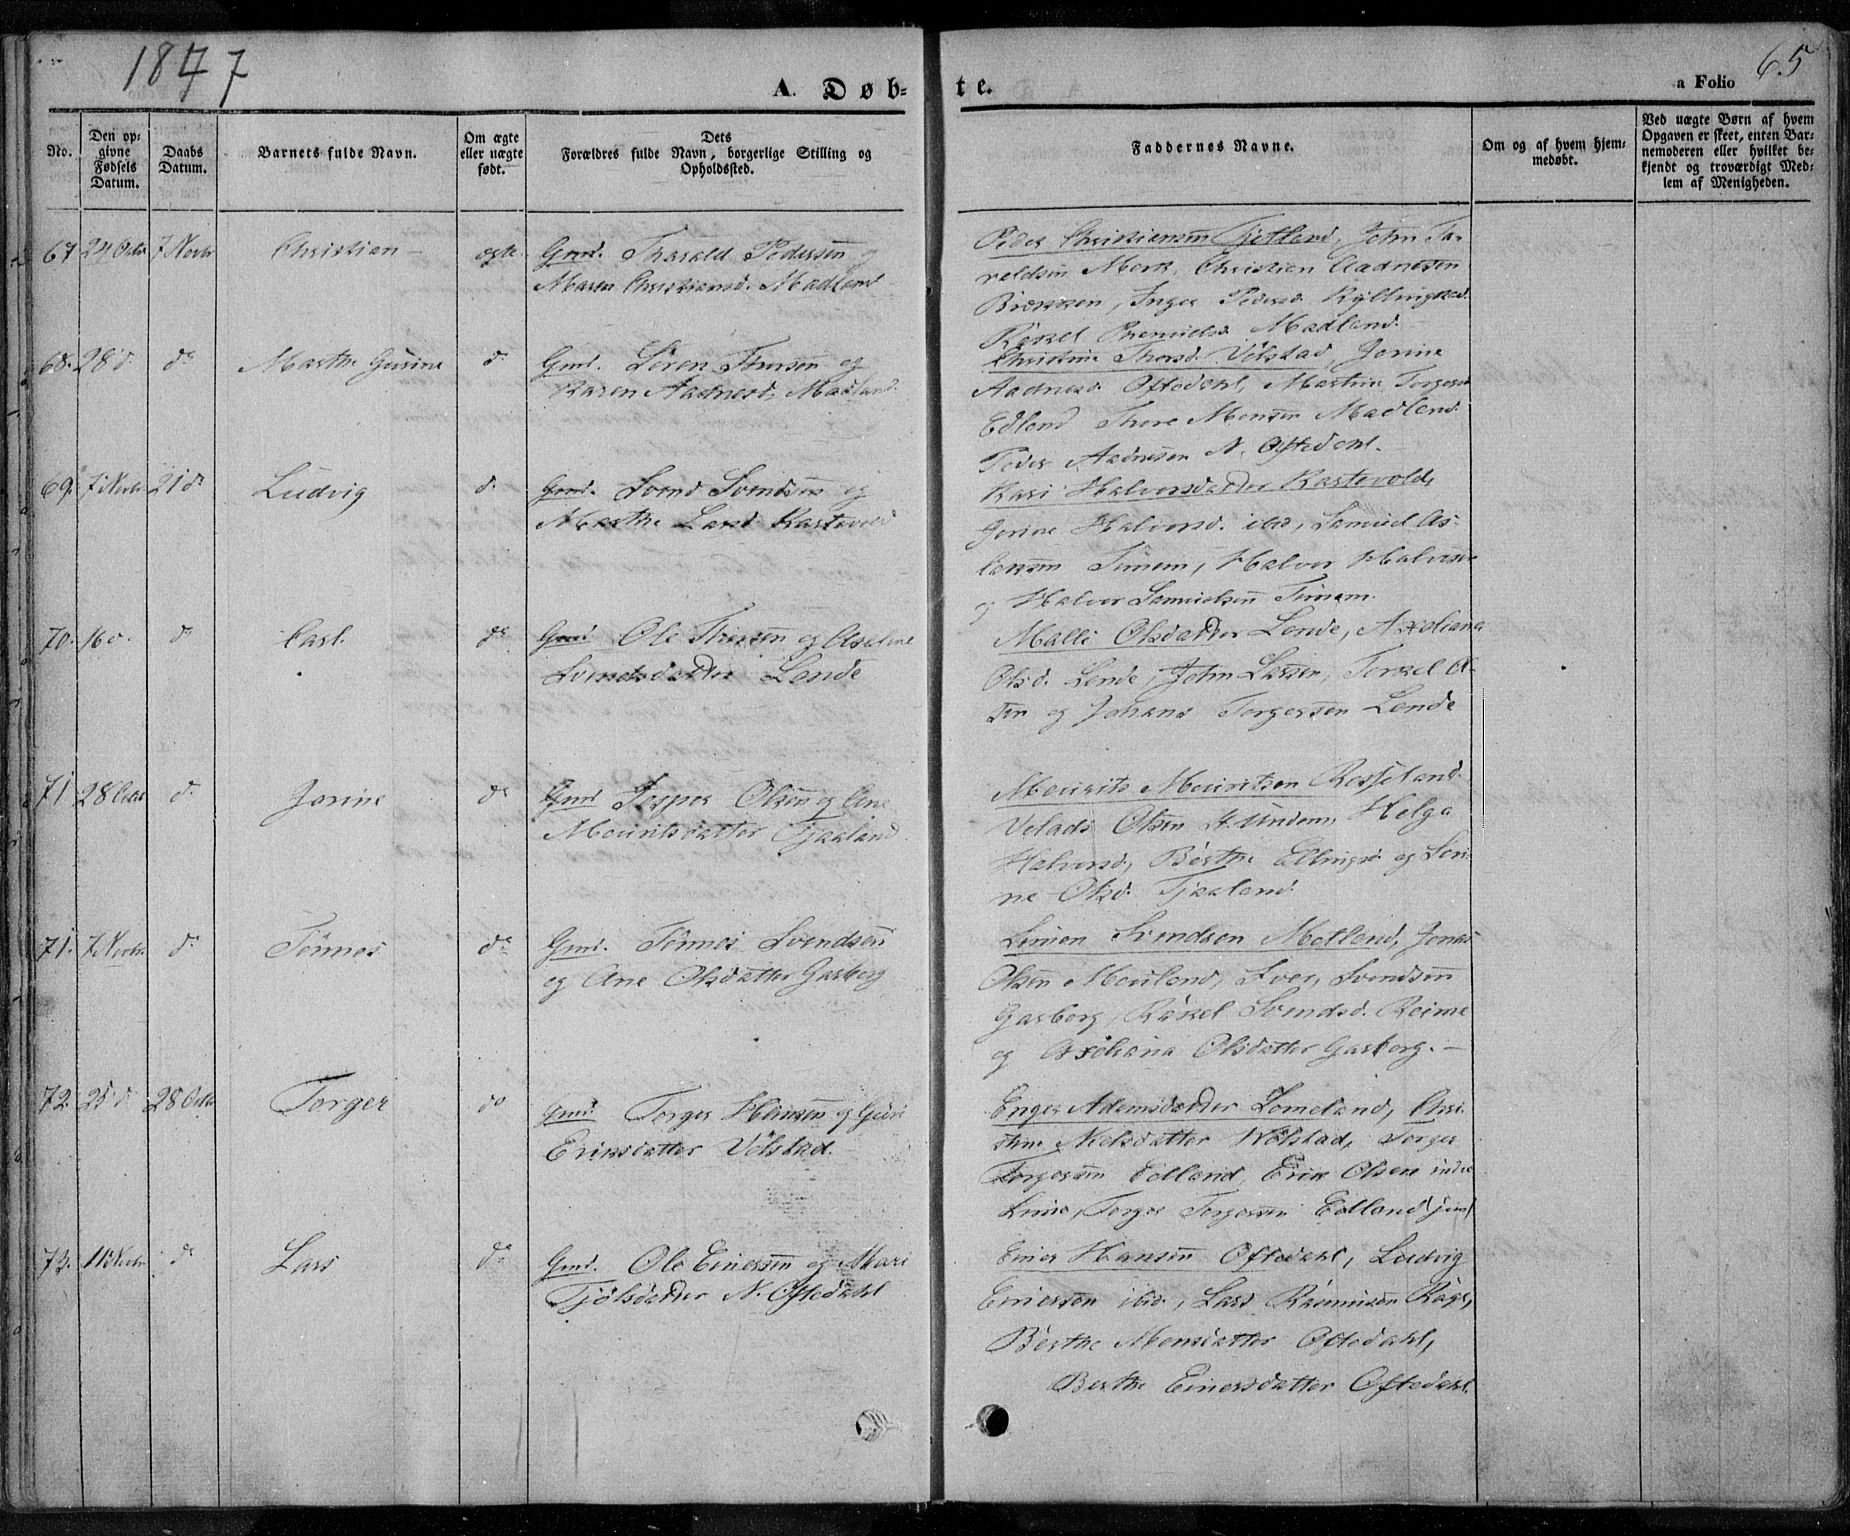 1847
65
A. Døb-
te.
a Folio
No.
Den op-
givne
Fødsels
Datum.
Daabs
Datum.
Barnets fulde Navn.
Om ægte
eller uægte
født.
Dets
Forældres fulde Navn, borgerlige Stilling og
Opholdssted.
Faddernes Navne.
Om og af hvem hjem-
medøbt.
Ved uægte Børn af hvem
Opgaven er skeet, enten Bar-
nemoderen eller hvilket be-
kjendt og troværdigt Med-
lem af Menigheden.
67 24 Octbr 7 Novbr Christian ægte Gmd. Tharald Pedersen og
Maren Christiansd. Madland
Peder Christiansen Tjetland, John Ta-
raldsen Mork, Christian Aadnesen
Brekken, Inger Pedersd. Kyllingstad
Räkel Madland.
68. 28 d d° Marthe Gurine d° Gmd. Sören Thorsen og
Karen Aadnesd. Madland.
Christine Thorsd. Völstad, Jorine
Aadnesd. Oftedahl, Martin Torgers
Edland Thore Monsen Madland.
Peder Aadnesen N. Oftedahl.
69. 7 Novbr 21 d° Ludvig d° Gmd. Svend Svendsen og
Marthe Larsd. Kartevold
Kari Halvorsdatter Kartevold,
Jorine Halvorsd. ibd, Samuel As-
lacksen Timem, Halvor Halvorsen
og Halvor Samuelsen Timem.
70. 16 d. d° Carl d° Gmd. Ole Thorsen og Axeline
Svendsdatter Lende
Malli Olsdatter Lende, Axeliana
Olsd. Lende, John Larsen, Torkel Ol-
sen og Johans Torgersen Lende
71 28 Octbr d° Jorine d° Gmd. Jesper Olsen og Ane
Mauritsdatter Tjaaland.
Maurits Mauritsen Rosseland
Velads Olsen Undem, Helga
Halvorsd, Berthe Ellingsd og Seri-
ne Olsd. Tjaaland.
71. 7 Novbr. d° Tönnes d° Gmd. Tönnes Svendsen
og Ane Olsdatter Garborg
Simen Svendsen Motland, Jonas
Olsen Mauland, Iver Svendsen
Garborg, Räkel Svendsd. Reime
og Axeliana Olsdatter Garborg. —
72. 25 d 28 Octbr Torger d° Gmd. Torger Hansen og Guri
Eriksdatter Völstad.
Enger Adamsdatter Lomeland, Chri-
stine Nielsdatter Wölstad, Torger
Torgersen Edland, Erik Olsen indre
Lima, Torger Torgersen Edland jun
73. 11 Novbr d° Lars d° Gmd. Ole Einersen og Mari
Tjölsdatter N. Oftedahl
Einer Hansen Oftedahl, Ludvig
Einersen ibd., Lars Rasmusen Räge,
Berthe Monsdatter Oftedahl,
Berthe Einersdatter Oftedahl.